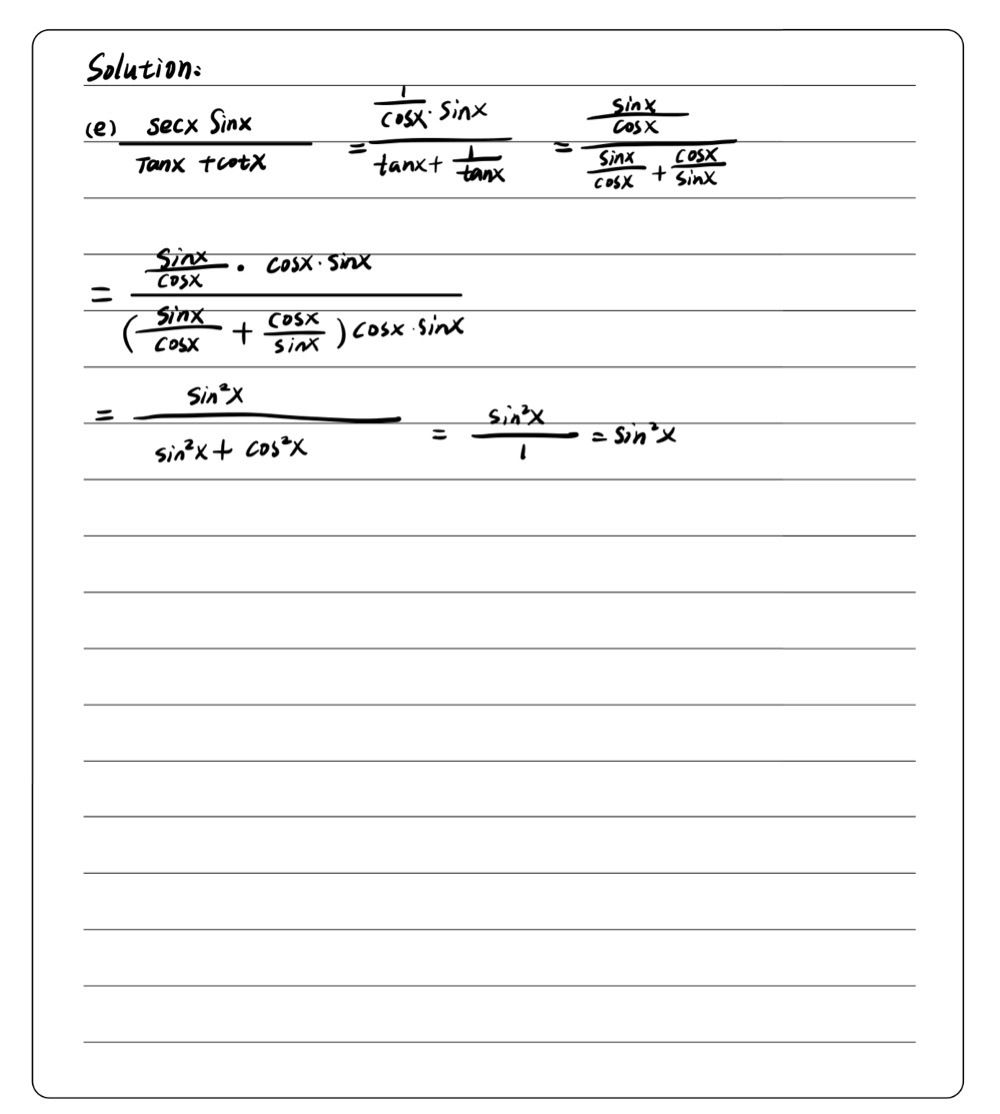 Solution:
(e) \frac{secx Sinx}{Tanx + cotx} = \frac{\frac{1}{cosx} \cdot sinx}{tanx + \frac{1}{tanx}} = \frac{\frac{sinx}{cosx}}{\frac{sinx}{cosx} + \frac{cosx}{sinx}}
= \frac{\frac{sinx}{cosx} \cdot cosx \cdot sinx}{(\frac{sinx}{cosx} + \frac{cosx}{sinx}) cosx \cdot sinx}
= \frac{sin^2x}{sin^2x + cos^2x} = \frac{sin^2x}{1} = sin^2x